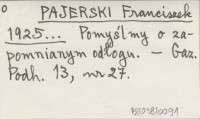 0
PAJERSKI Franciszek
1925... Pomyślmy o za-
pomnianym odłogu. – Gaz.
Podh. 13, nr 27.